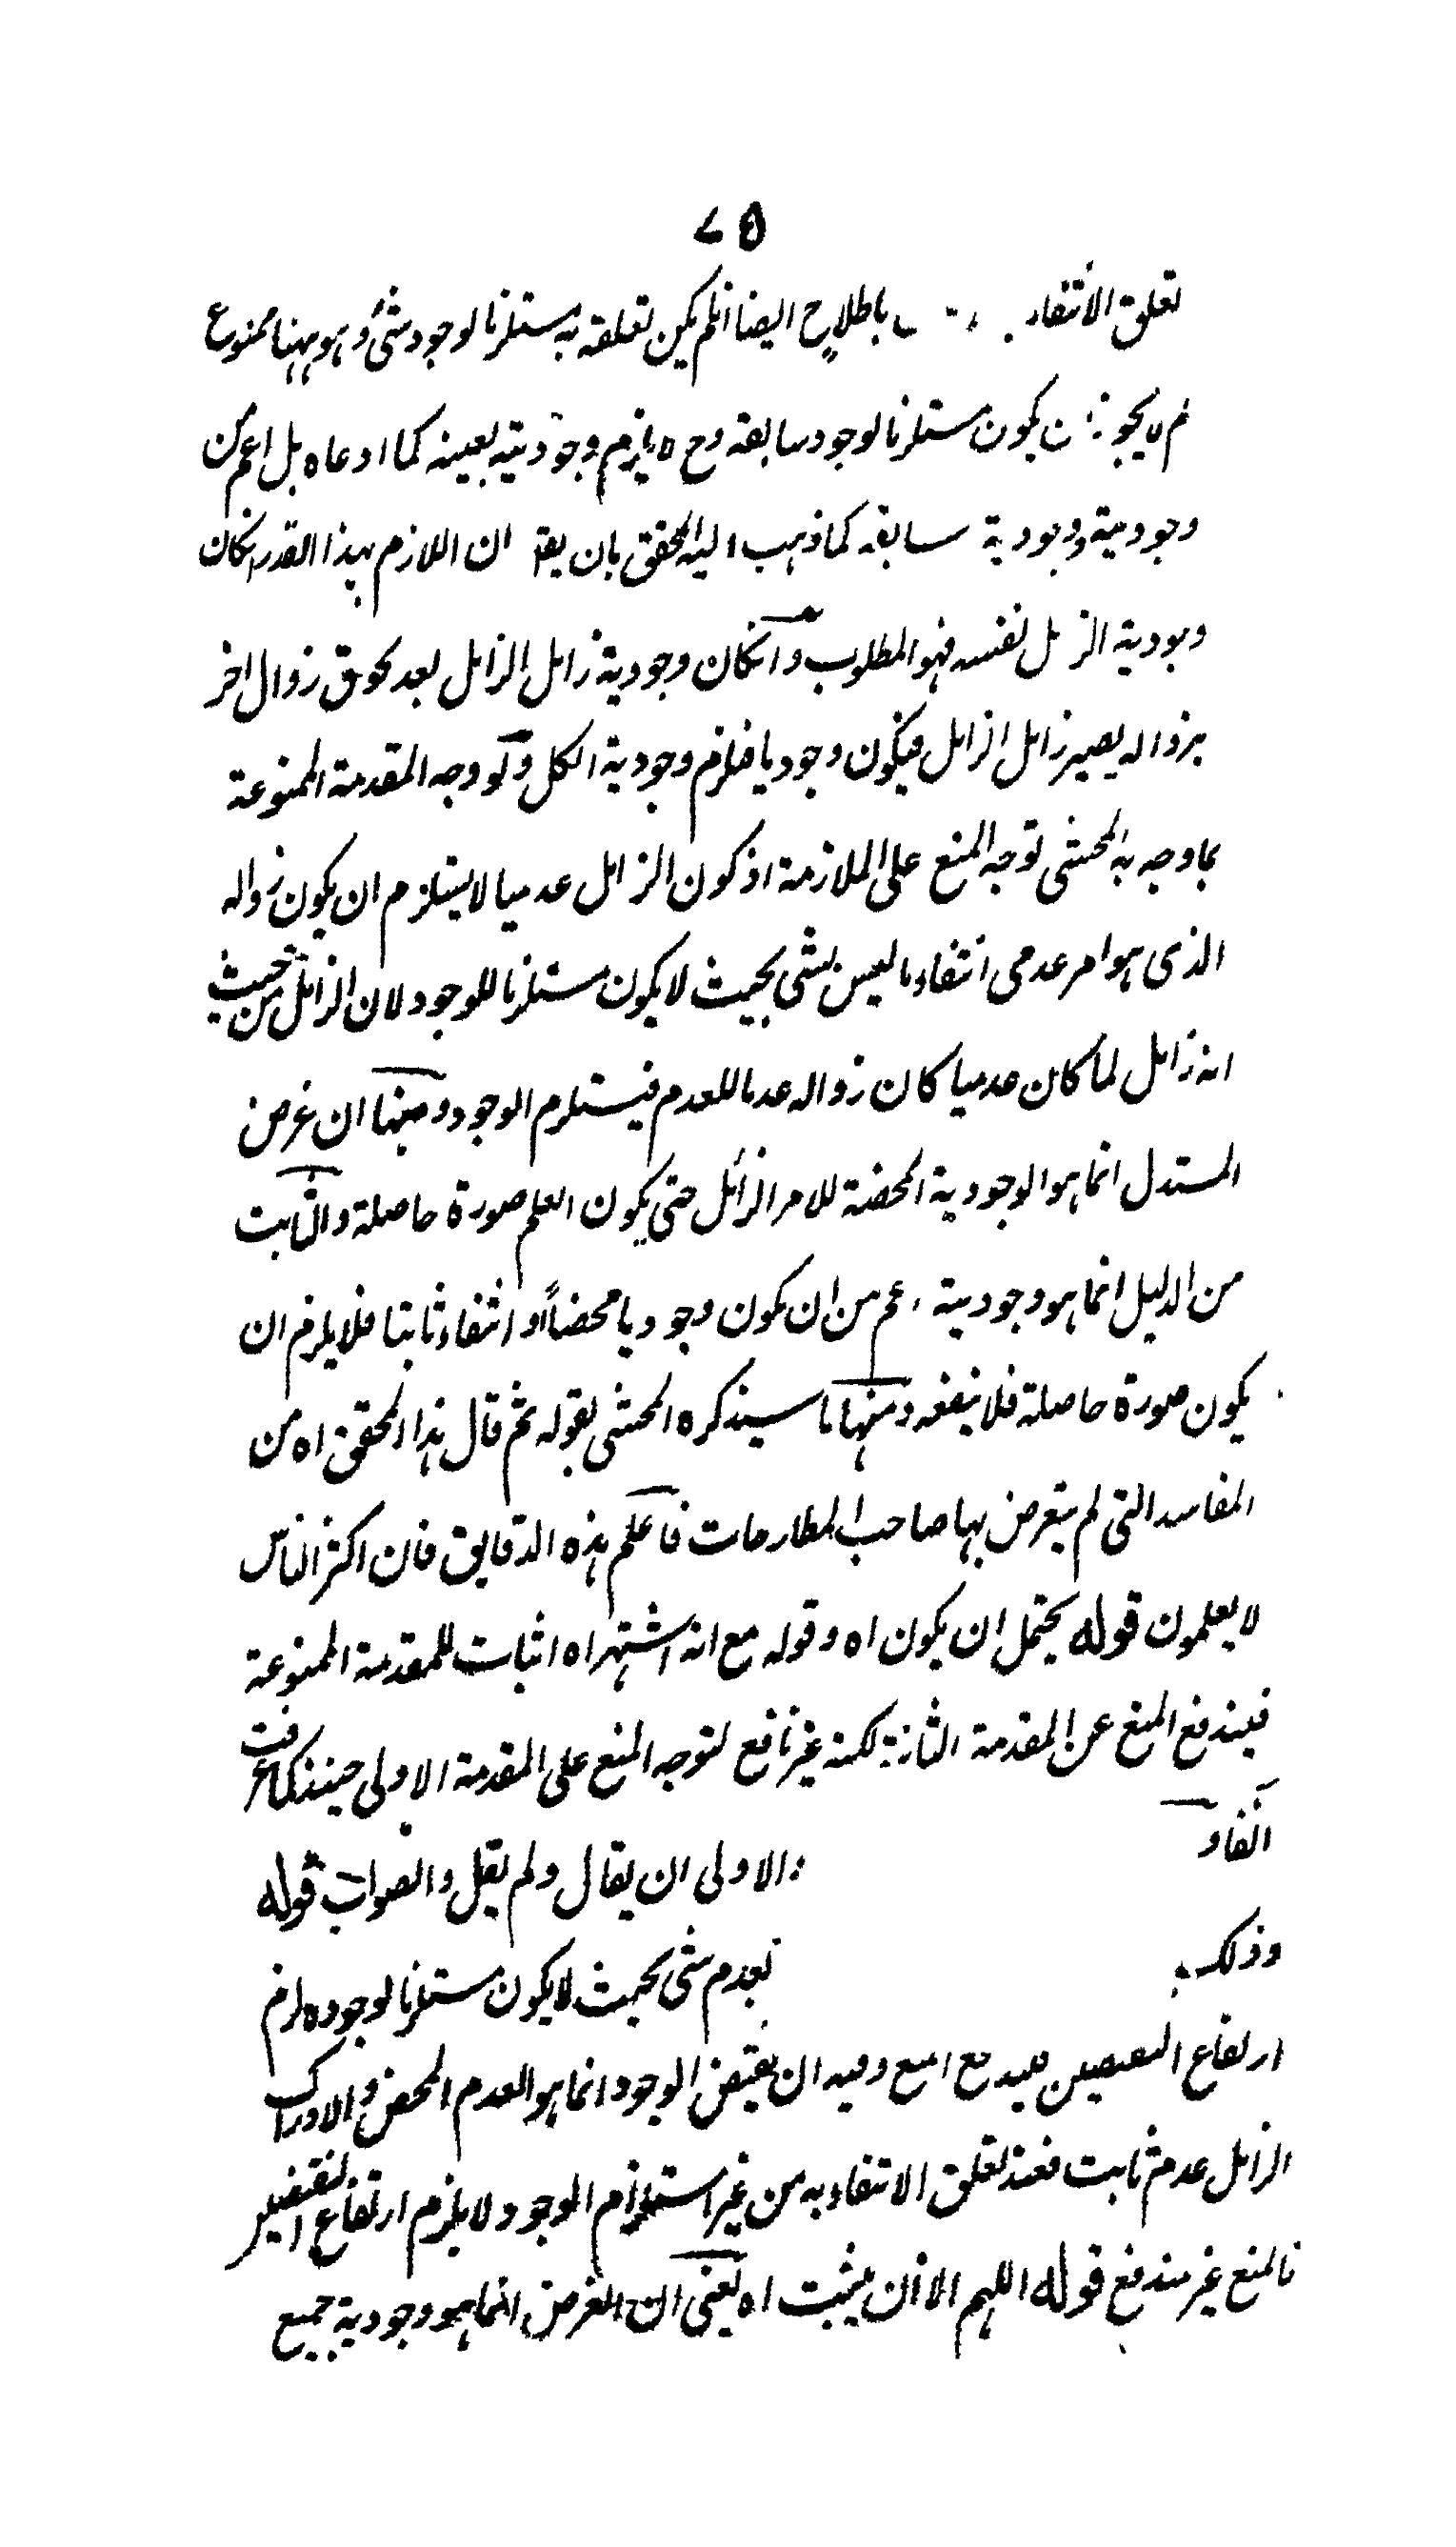 ٧٥
تعلق الانتفاء باطلاح ايضا انلم يكن تعلقه به مستلزما لوجود شئ وهو ههنا ممنوع
لم لا يجوز ان يكون مستلزما لوجود سابقه وح لا يلزم وجوديته بعينه كما ادعاه بل اعم من
وجوديته ووجودية سابقه كما ذهب اليه المحقق بان يقا ان اللازم بهذا القدر انكان
وجودية الزائل نفسه فهو المطلوب وانكان وجودية زائل الزائل بعد لحوق زوال اخر
بزواله يصير زائل الزائل فيكون وجوديا فلزم وجودية الكل ولو وجه المقدمة الممنوعة
بما وجه به المحشى توجه المنع على الملازمة اذ كون الزائل عدميا لا يستلزم ان يكون زواله
الذى هو امر عدمى انتفاء ما ليس بشى بحيث لا يكون مستلزما للوجود لان الزائل من حيث
انه زائل لما كان عدميا كان زواله عدما للعدم فيستلزم الوجود ومنها ان غرض
المستدل انما هو الوجودية المحضة للامر الزائل حتى يكون العلم صورة حاصلة والثابت
من الدليل انما هو وجودية اعم من ان يكون وجوديا محضاً او انتفاء ثابتا فلا يلزم ان
يكون صورة حاصلة فلا ينفعه ومنها ما سيذكره المحشى بقوله ثم قال هذا المحقق اه من
المفاسد التى لم يتعرض بها صاحب المطارحات فاعلم هذه الدقايق فان اكثر الناس
لا يعلمون قوله يحتمل ان يكون اه وقوله مع انه اشتهر اه اثبات للمقدمة الممنوعة
فيندفع المنع عن المقدمة الثانية لكنه غير نافع لتوجه المنع على المقدمة الاولى حينئذ كما عرفت
آنفا و والاولى ان يقال ولم يقل والصواب قوله
وذلك بعدم شى بحيث لا يكون مستلزما لوجوده لزم
ارتفاع النقيضين فيندفع المنع وفيه ان نقيض الوجود انما هو العدم المحض والادراك
الزائل عدم ثابت فعند تعلق الانتفاء به من غير استلزام الوجود لا يلزم ارتفاع النقيضين
فالمنع غير مندفع قوله اللهم الا ان يثبت اه يعنى ان الغرض انما هو وجودية جميع